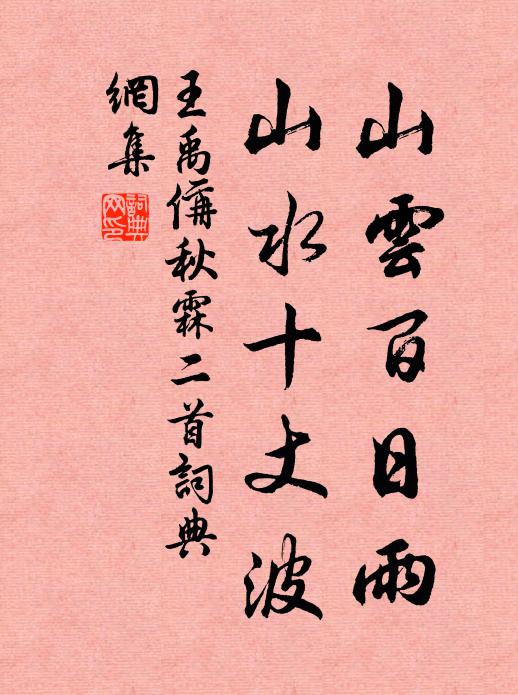 山雲百日雨
山水十丈波
王禹偁秋霖二首詞典
網集
詞典
网印